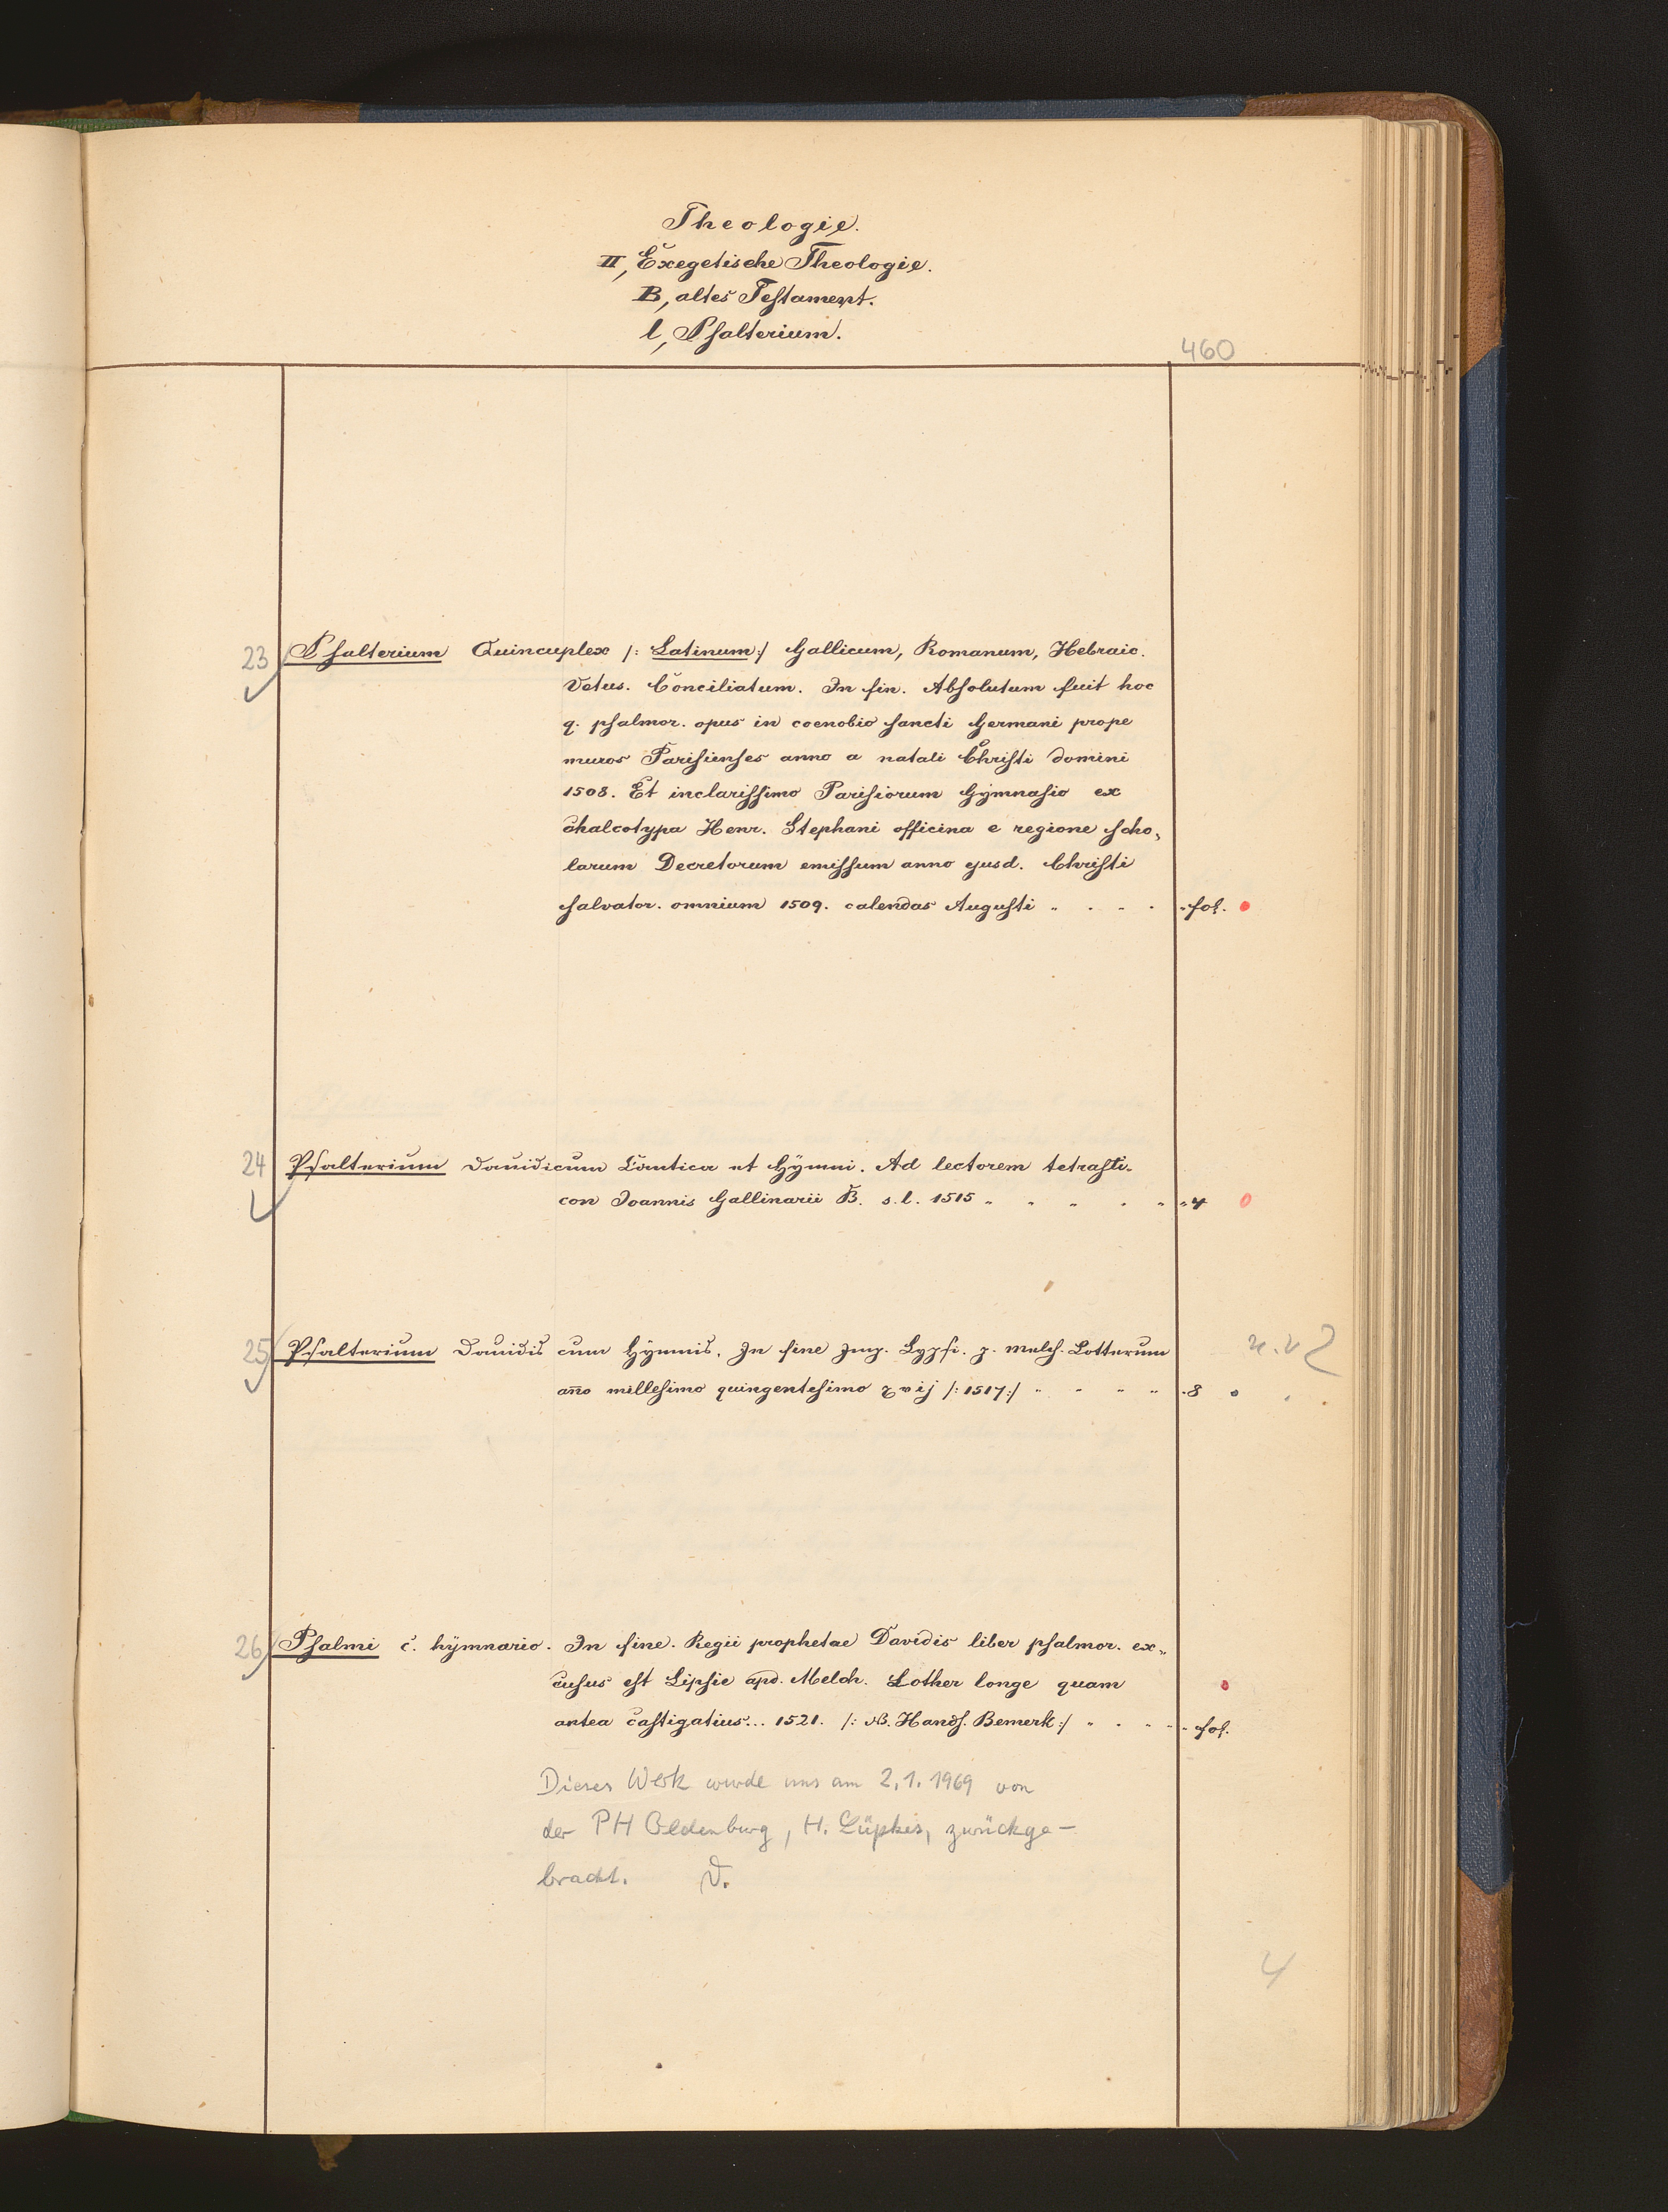 Theologie.
II, Exegetische Theologie.
B, altes Testament.
l, Psalterium.
460
23 Psalterium Quincuplex /: Latinum :/ Gallicum, Romanum, Hebraic.
Vetus. Conciliatum. In fin. Absolutum fuit hoc
q. psalmor. opus in coenobio sancti Germani prope
muros Parisienses anno a natali Christi domini
1508. Et inclarissimo Parisiorum Gymnasio ex
chalcotypa Henr. Stephani officina e regione scho„
larum Decretorum emissum anno ejusd. Christi
salvator. omnium 1509. calendas Augusti „ . „ . fol.
24 Psalterium Dauidicum Cantica et Hÿmni. Ad lectorem tetrasti-
con Joannis Gallinarii B. s. l. 1515 „ „ „ „ „ 4
25 Psalterium Dauidis cum Hÿmnis. In fine Imp. Lypsi. p. Melch. Lotterum
año millesimo quingentesimo xvij /: 1517 :/ „ „ „ „ 8
26 Psalmi c. hÿmnario. In fine. Regii prophetae Davidis liber psalmor. ex„
cusus est Lipsie apd. Melch. Lother longe quam
antea castigatius... 1521. /: NB. Hands. Bemerk :/ „ . „ „ fol.
Dieses Werk wurde uns am 2.1.1969 von
der PH Oldenburg, H. Lüpkes, zurückge-
bracht. V.